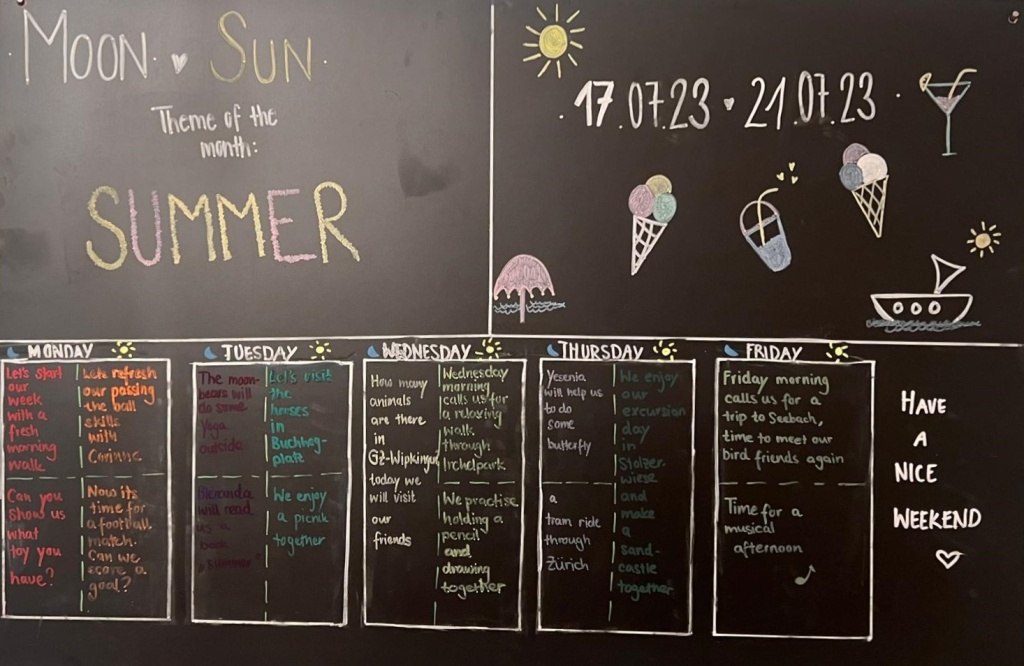 MOON SUN
Theme of the
month:
SUMMER
17.07.23 21.07.23
MONDAY
Let's start
our
week
with a
fresh
morning
walk
Can you
show us
what
toy you
have?
Lets refresh
our passing
the ball
skills
with
Corinne
Now its
time for
a football
match.
Can we
score a
goal?
TUESDAY
The moon-
bears will
do some
Yoga
outside
will read
us a
book
"Summer"
Let's visit
the
horses
in
Buchheg-
platz
We enjoy
a picnik
together
WEDNESDAY
How many
animals
are there
in
GZ-Wipkingen
today we
will visit
our
friends
Wednesday
morning
calls us for
a relaxing
walk
through
Irchelpark
We practise
holding a
pencil
and
drawing
together
THURSDAY
Yesenia
will help us
to do
some
butterfly
a
tram ride
through
Zürich
We enjoy
our
excursion
day
in
Stolzer
wiese
and
make
a
sand-
castle
together
FRIDAY
Friday morning
calls us for a
trip to Seebach,
time to meet our
bird friends again
Time for a
musical
afternoon
HAVE
A
NICE
WEEKEND